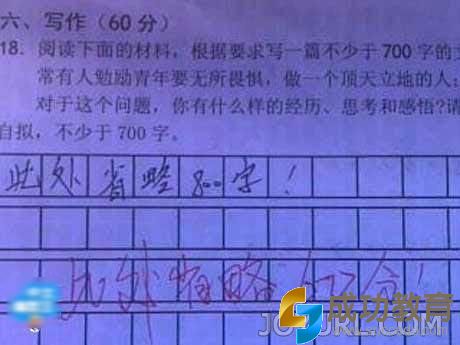 六、写作（60分）
18. 阅读下面的材料，根据要求写一篇不少于700字的
常有人勉励青年要无所畏惧，做一个顶天立地的人；
对于这个问题，你有什么样的经历、思考和感悟?请
自拟，不少于700字。
此处省略800字！
此处省略 分！
成功教育
JCJURL.COM